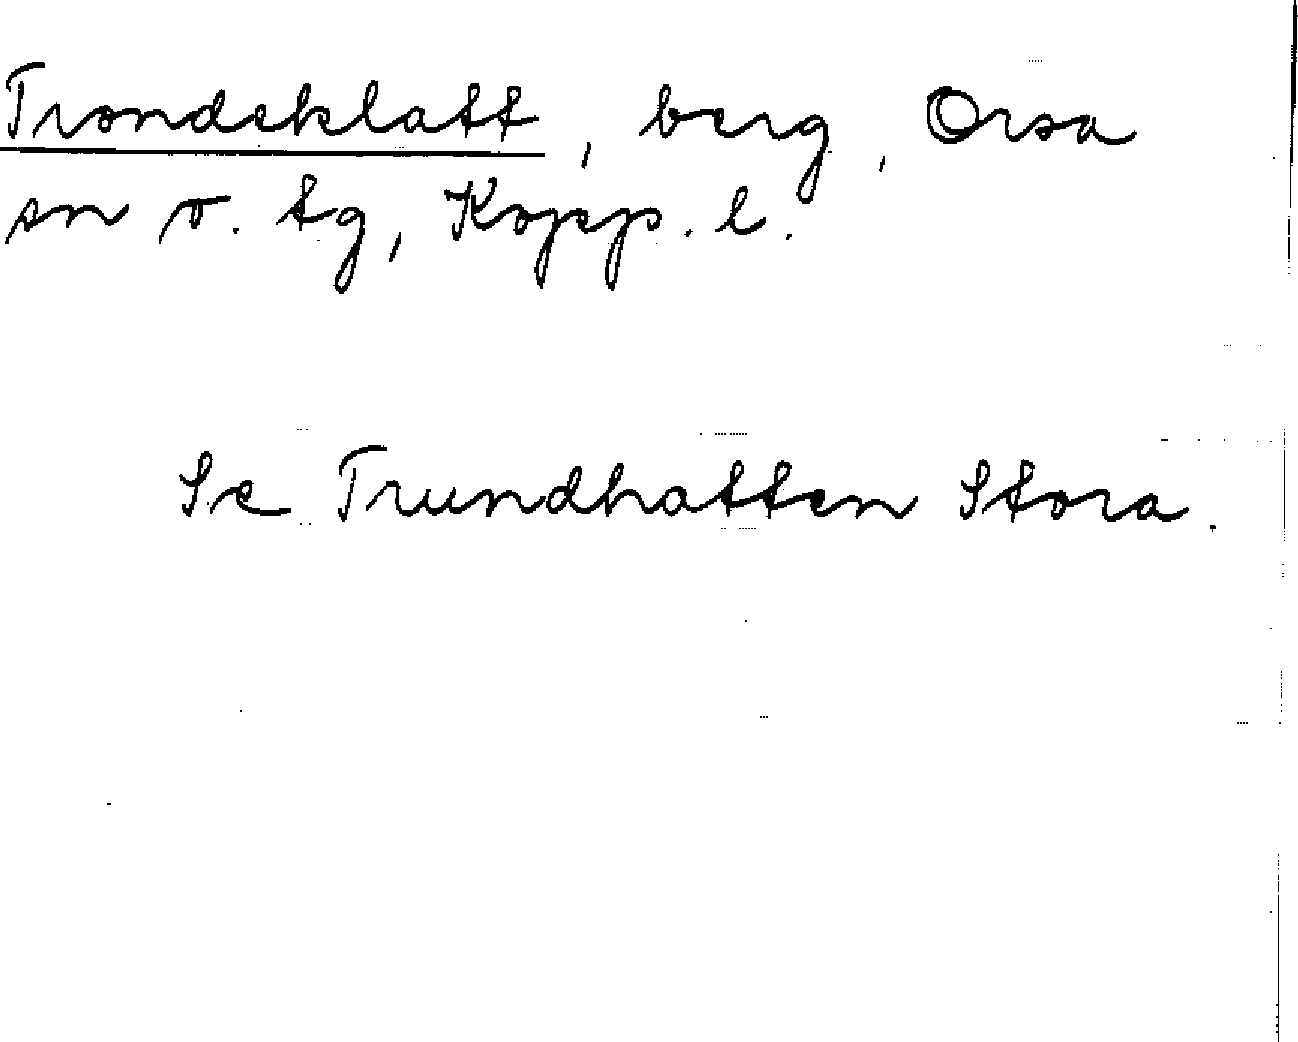 Trondeklatt, berg, Orsa
sn o. tg, Kopp. l.
Se Trundhatten Stora.